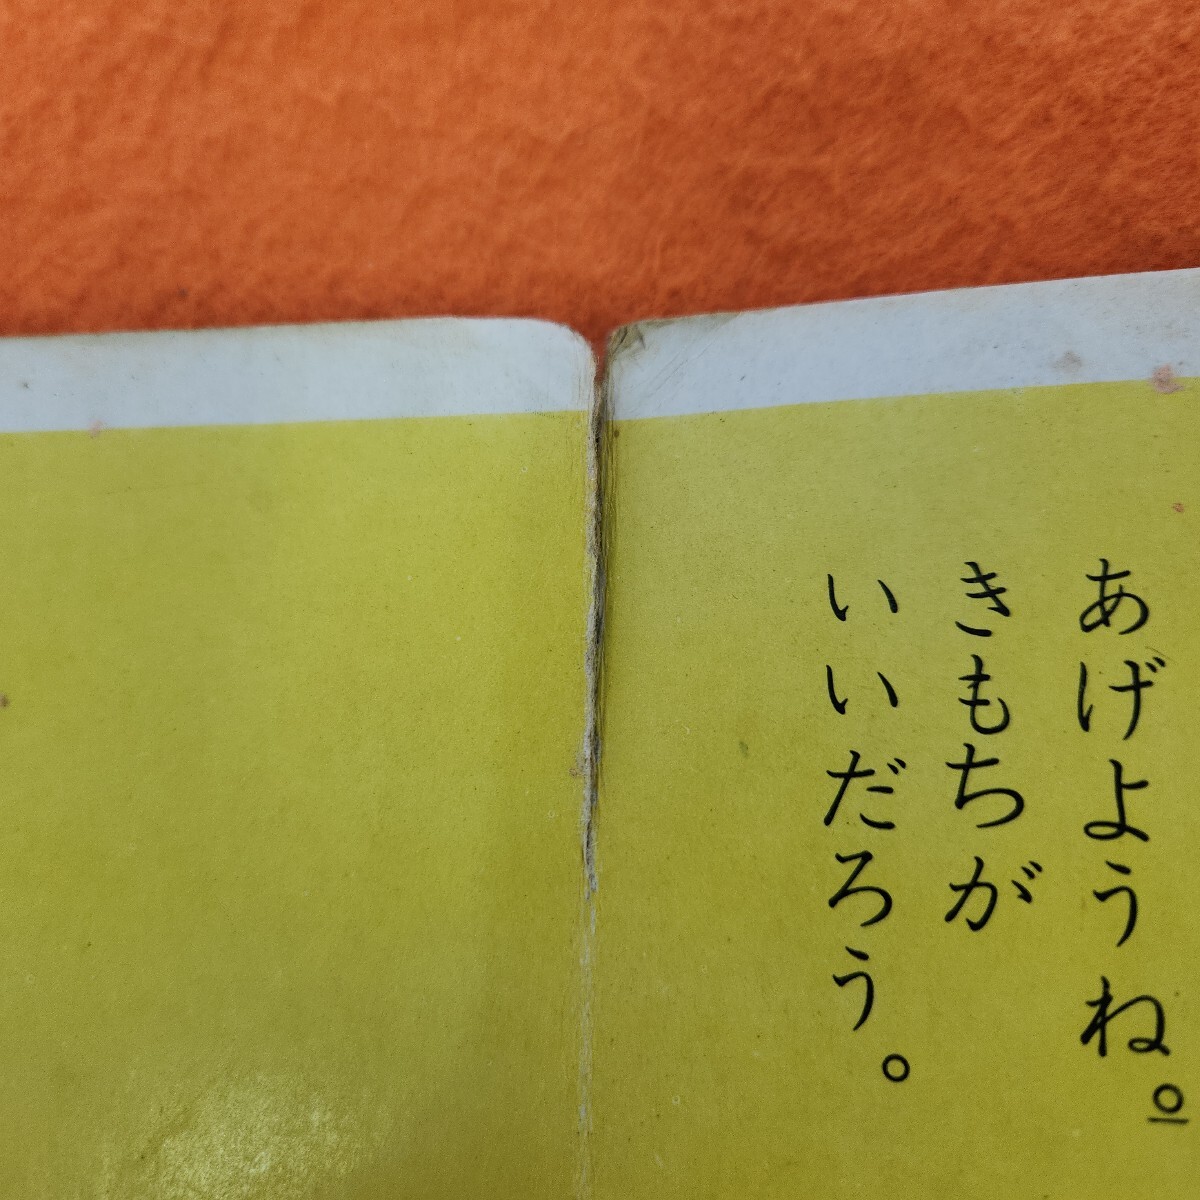 あげようね。
きもちが
いいだろう。